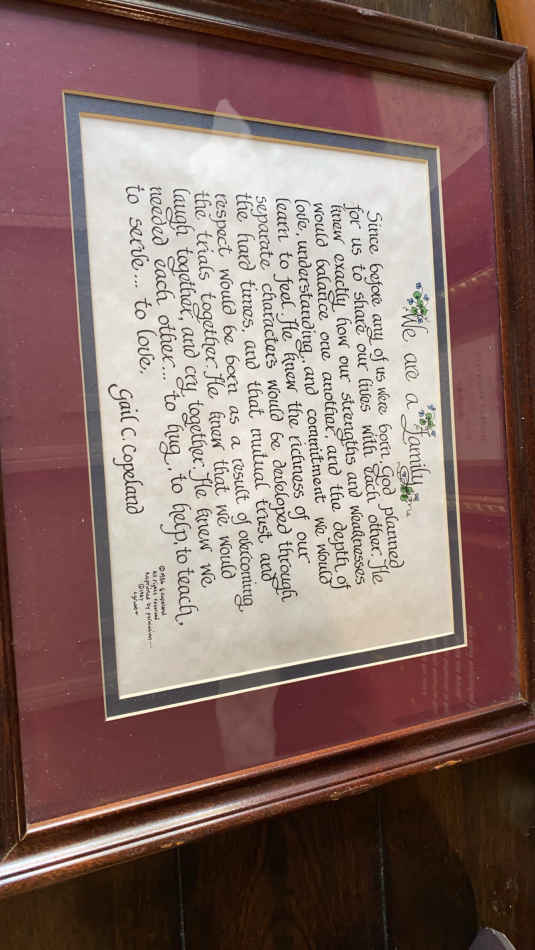 We are a Family
Since before any of us were born God planned
for us to share our lives with each other. He
knew exactly how our strengths and weaknesses
would balance one another and the depth of
love, understanding, and commitment we would
learn to feel. He knew the richness of our
separate characters would be developed through
the hard times, and that mutual trust and
respect would be born as a result of overcoming
the trials together. He knew that we would
laugh together, and cry together. He knew we
needed each other... to hug, to help, to teach,
to serve... to love.
Gail C. Copeland
All rights reserved
Reprinted by permission